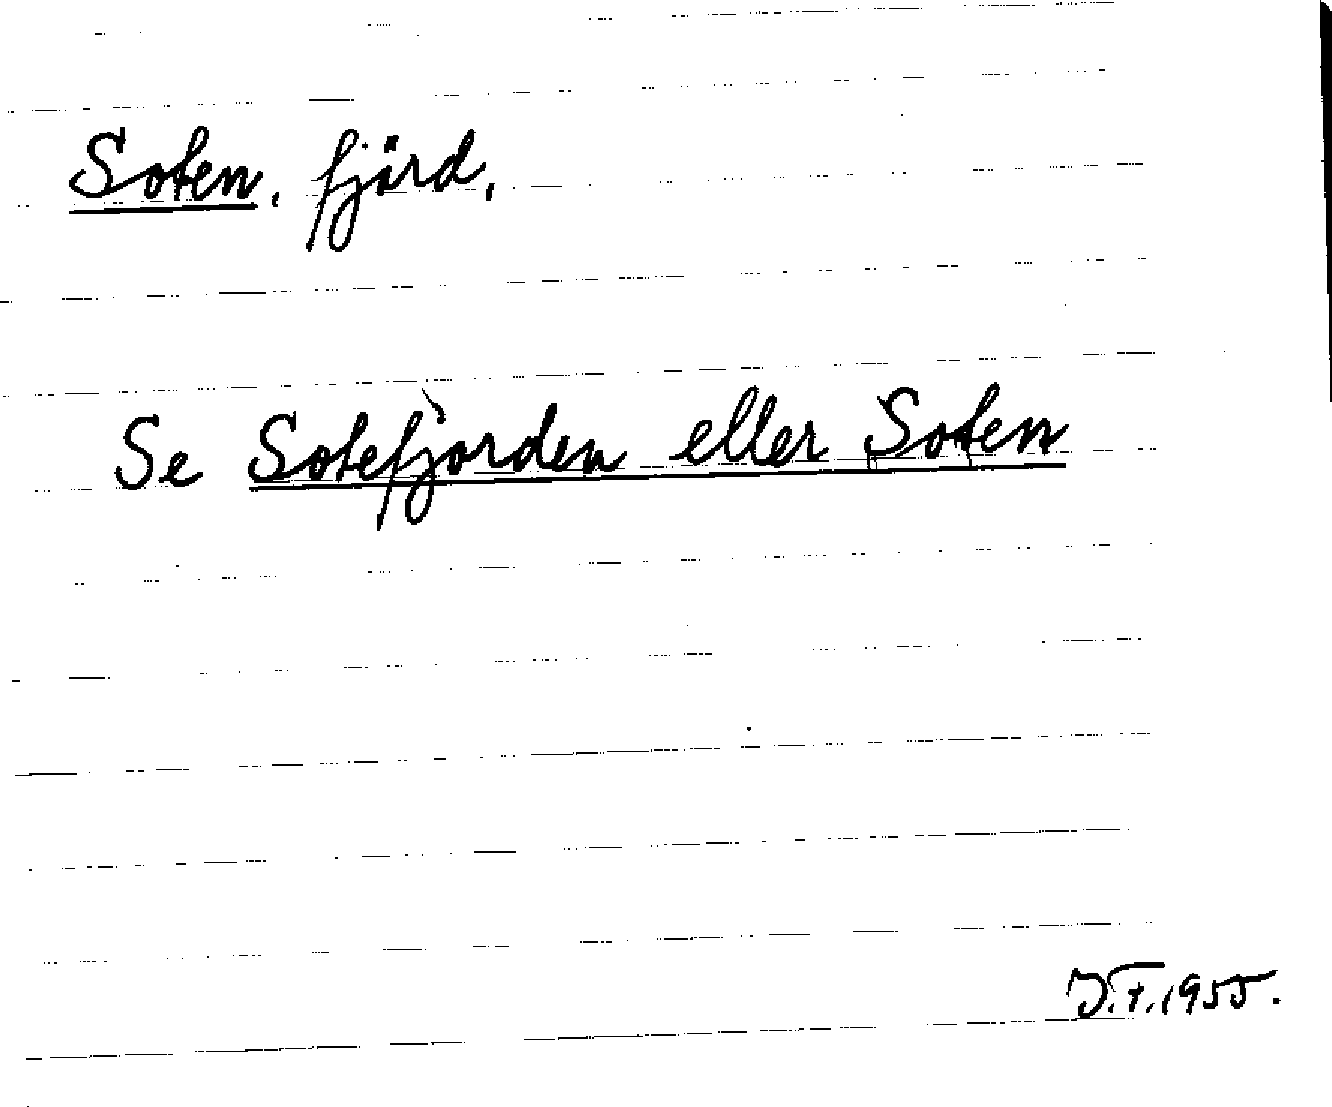 Soten, fjärd,
Se Sotefjorden eller Soten
J.F. 1955.